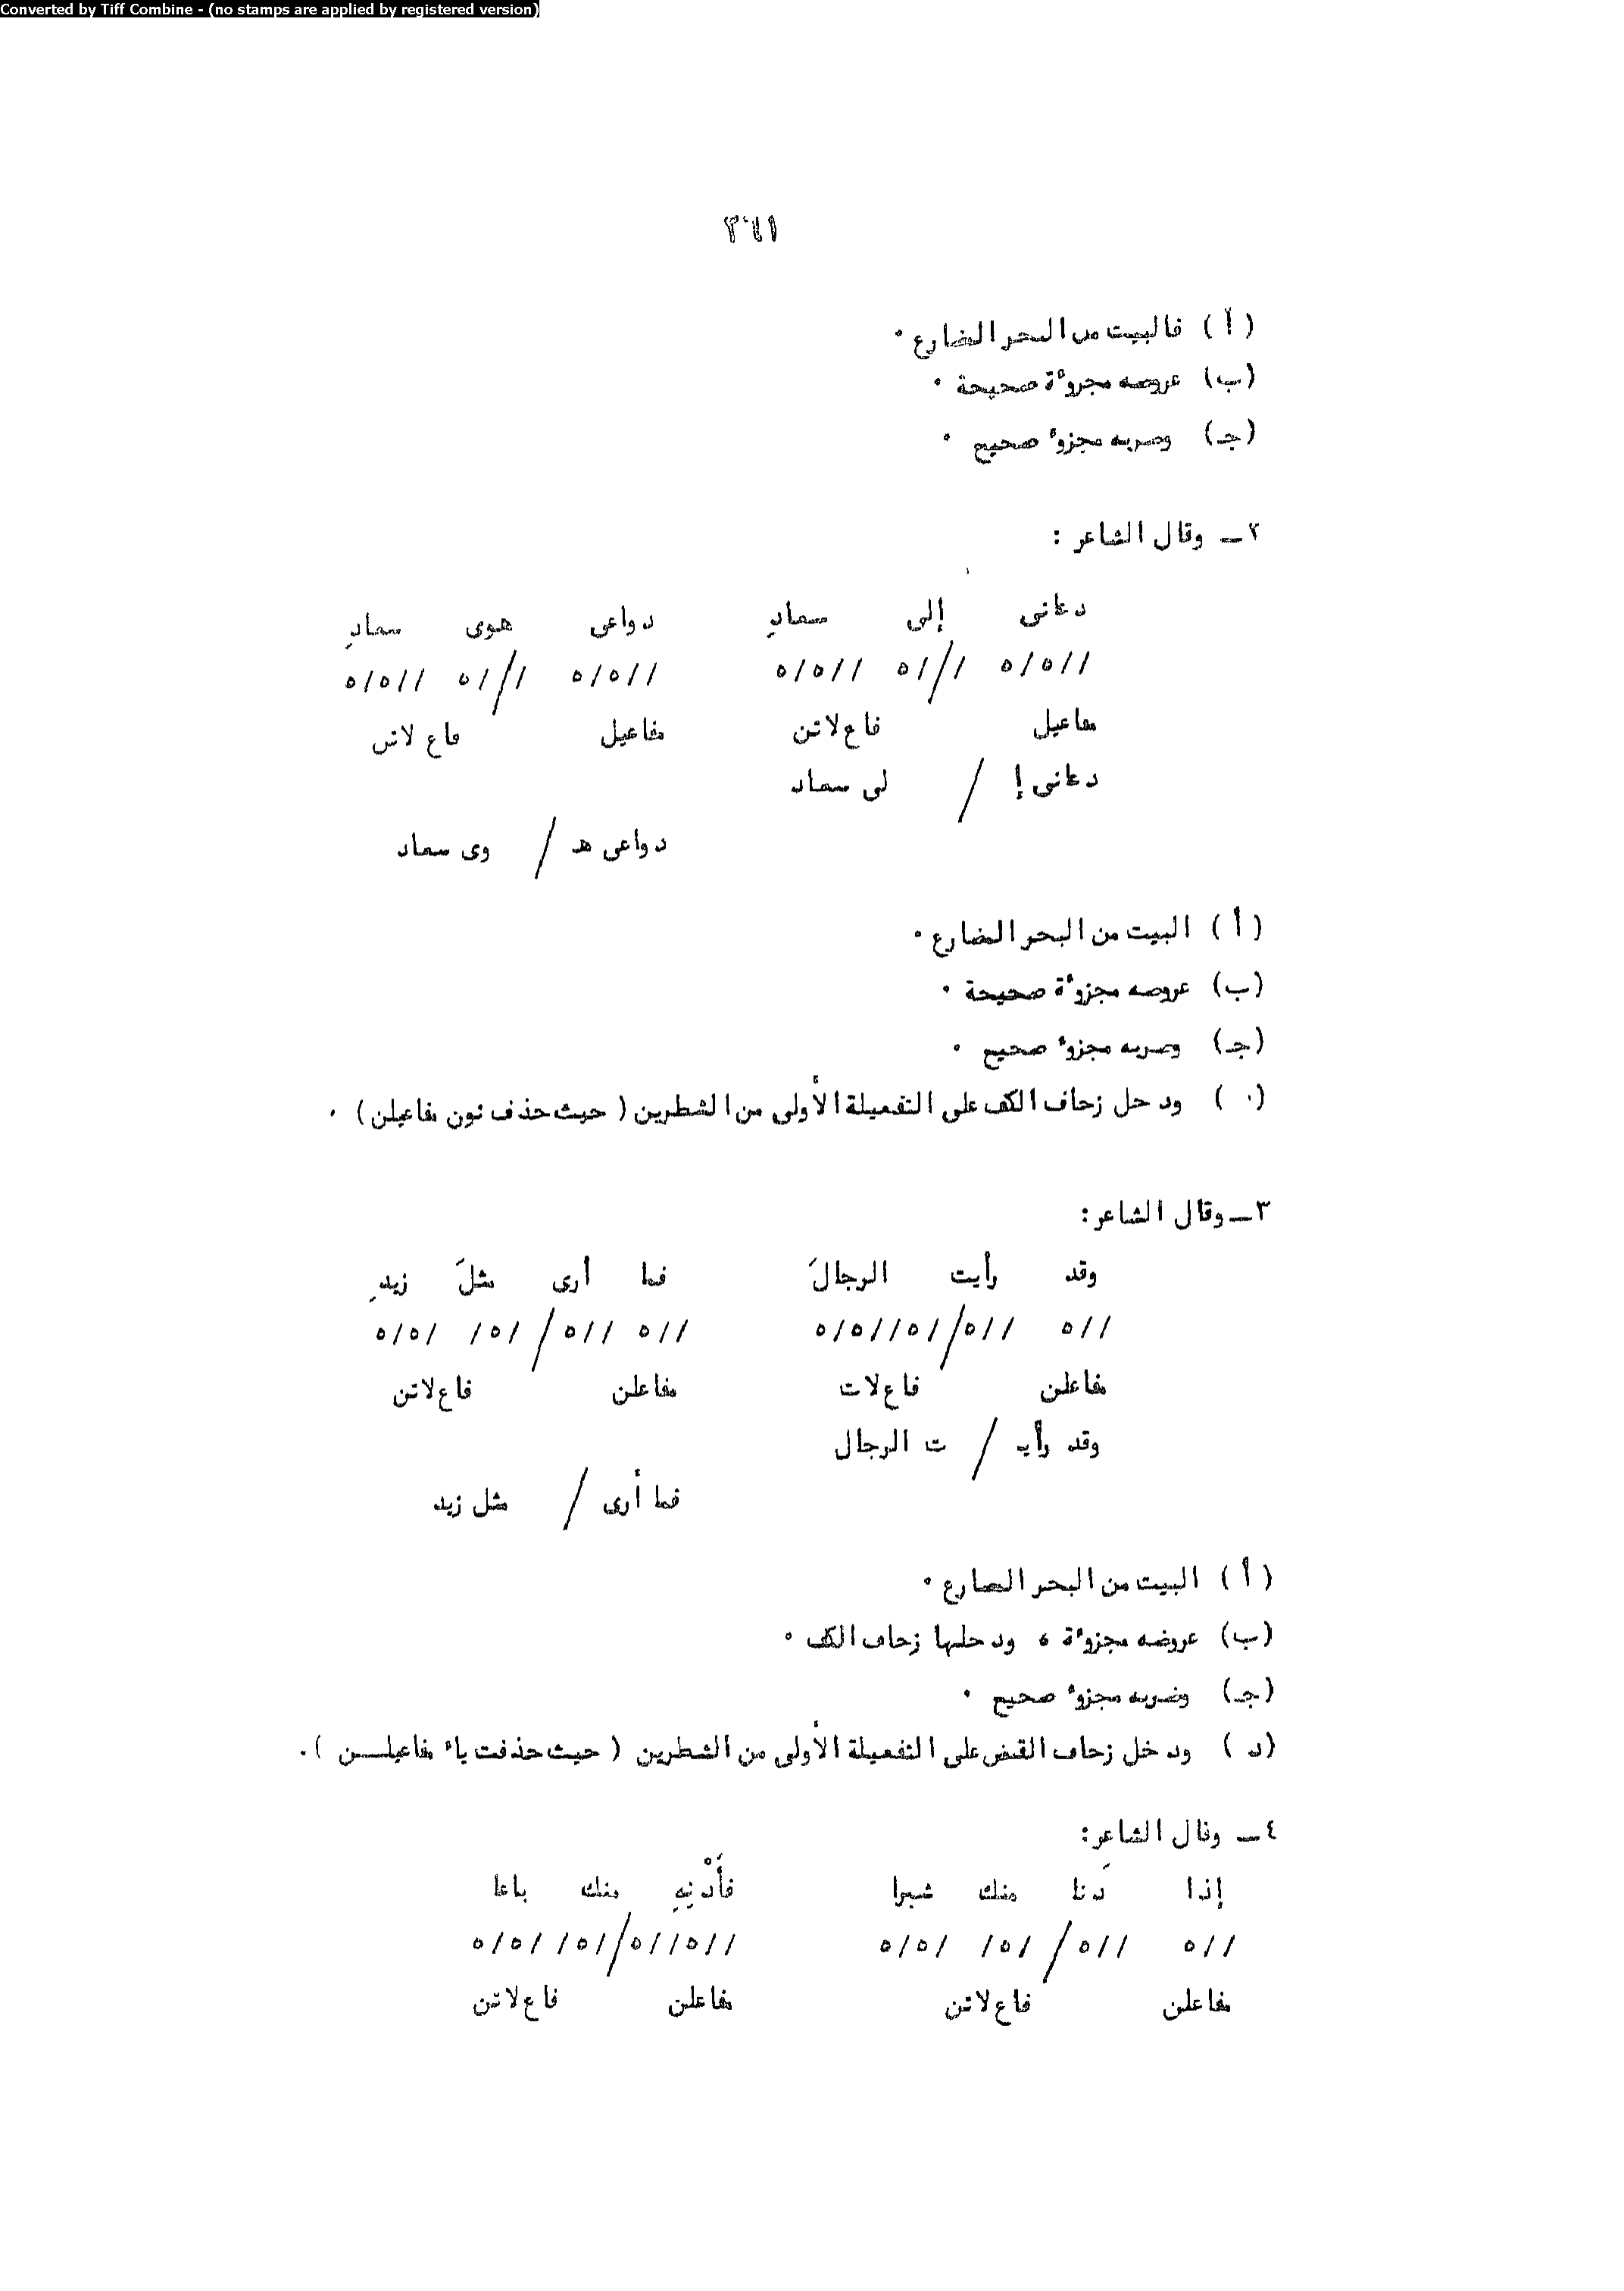 Converted by Tiff Combine - (no stamps are applied by registered version)
٣٦١
(أ) فالبيت من البحر المضارع .
(ب) عروضه مجزوءة صحيحة .
(جـ) وضربه مجزوء صحيح .
٢ـ وقال الشاعر :
دعانى إلى سعادِ دواعى هوى سعادِ
//٥/٥ /‏/‏/٥ //٥/٥ //٥/٥ /‏/‏/٥ //٥/٥
مفاعيل فاع لاتن مفاعيل فاع لاتن
دعانى إ / لى سعاد
دواعى هـ / وى سعاد
(أ) البيت من البحر المضارع .
(ب) عروضه مجزوءة صحيحة .
(جـ) وضربه مجزوء صحيح .
( ) ودخل زحاف الكف على التفعيلة الأولى من الشطرين ( حيث حذف نون مفاعيلن ) .
٣ـ وقال الشاعر:
وقد رأيت الرجالَ فما أرى مثلَ زيدِ
//٥ //٥/‏/٥//٥/٥ //٥ //٥ / /٥/ /٥/٥
مفاعلن فاع لات مفاعلن فاع لاتن
وقد رأيـ / ت الرجال
فما أرى / مثل زيد
(أ) البيت من البحر المضارع .
(ب) عروضه مجزوءة ، ودخلها زحاف الكف .
(جـ) وضربه مجزوء صحيح .
(د) ودخل زحاف القبض على التفعيلة الأولى من الشطرين ( حيث حذفت ياء مفاعيلـــن ) .
٤ـ وقال الشاعر:
إذا دَنا منك شبرا فأَدْنِهِ منك باعا
//٥ //٥ / /٥/ /٥/٥ //٥//٥/‏/٥/ /٥/٥
مفاعلن فاع لاتن مفاعلن فاع لاتن